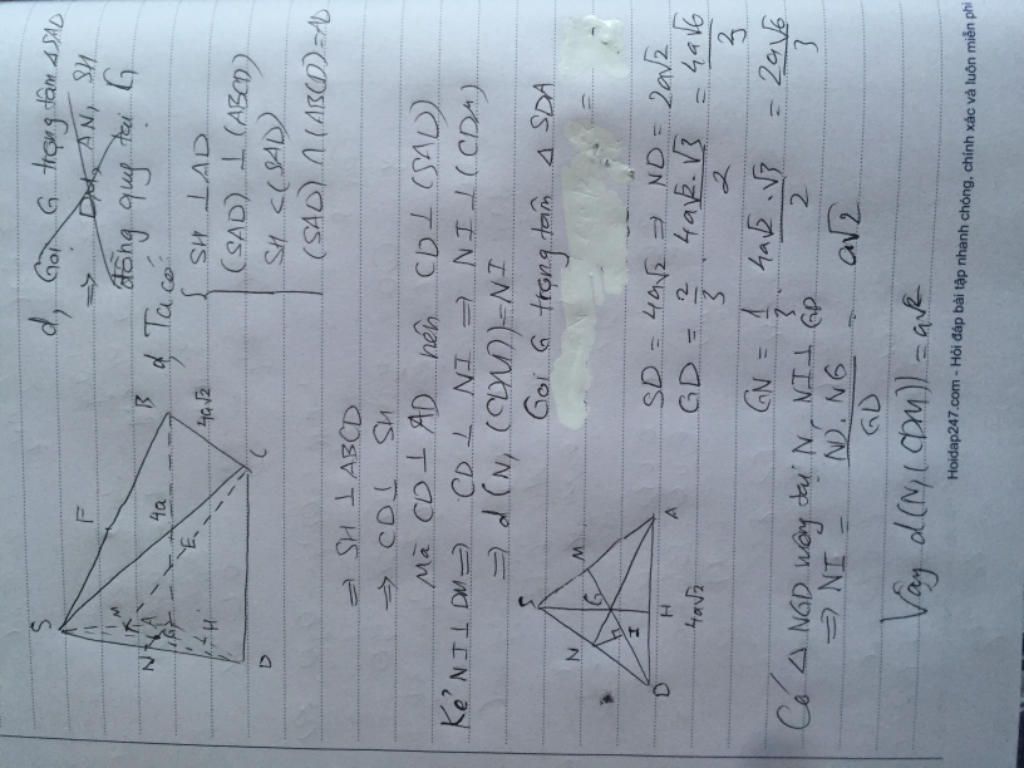 d, Gọi G trọng tâm ΔSAD
⇒ DM, AN, SH
đồng quy tại G
d, Ta có
SH ⊥ AD
(SAD) ⊥ (ABCD)
SH ⊂ (SAD)
(SAD) ∩ (ABCD) = AD
S
F
B
4a
4a√2
M
N
A
E
G
H
D
C
⇒ SH ⊥ ABCD
⇒ CD ⊥ SH
Mà CD ⊥ AD nên CD ⊥ (SAD)
Kẻ NI ⊥ DM ⇒ CD ⊥ NI ⇒ NI ⊥ (CDM)
⇒ d(N, (CDM)) = NI
Gọi G trọng tâm Δ SDA
=
S
N
M
G
I
D
H
A
4a√2
SD = 4a√2 ⇒ ND = 2a√2
GD = 2/3 . 4a√2.√3/2 = 4a√6/3
GN = 1/3 . 4a√2.√3/2 = 2a√6/3
Có Δ NGD vuông tại N, NI ⊥ GD
⇒ NI = ND.NG/GD = a√2
Vậy d(N, (CDM)) = a√2
Hoidap247.com - Hỏi đáp bài tập nhanh chóng, chính xác và luôn miễn phí